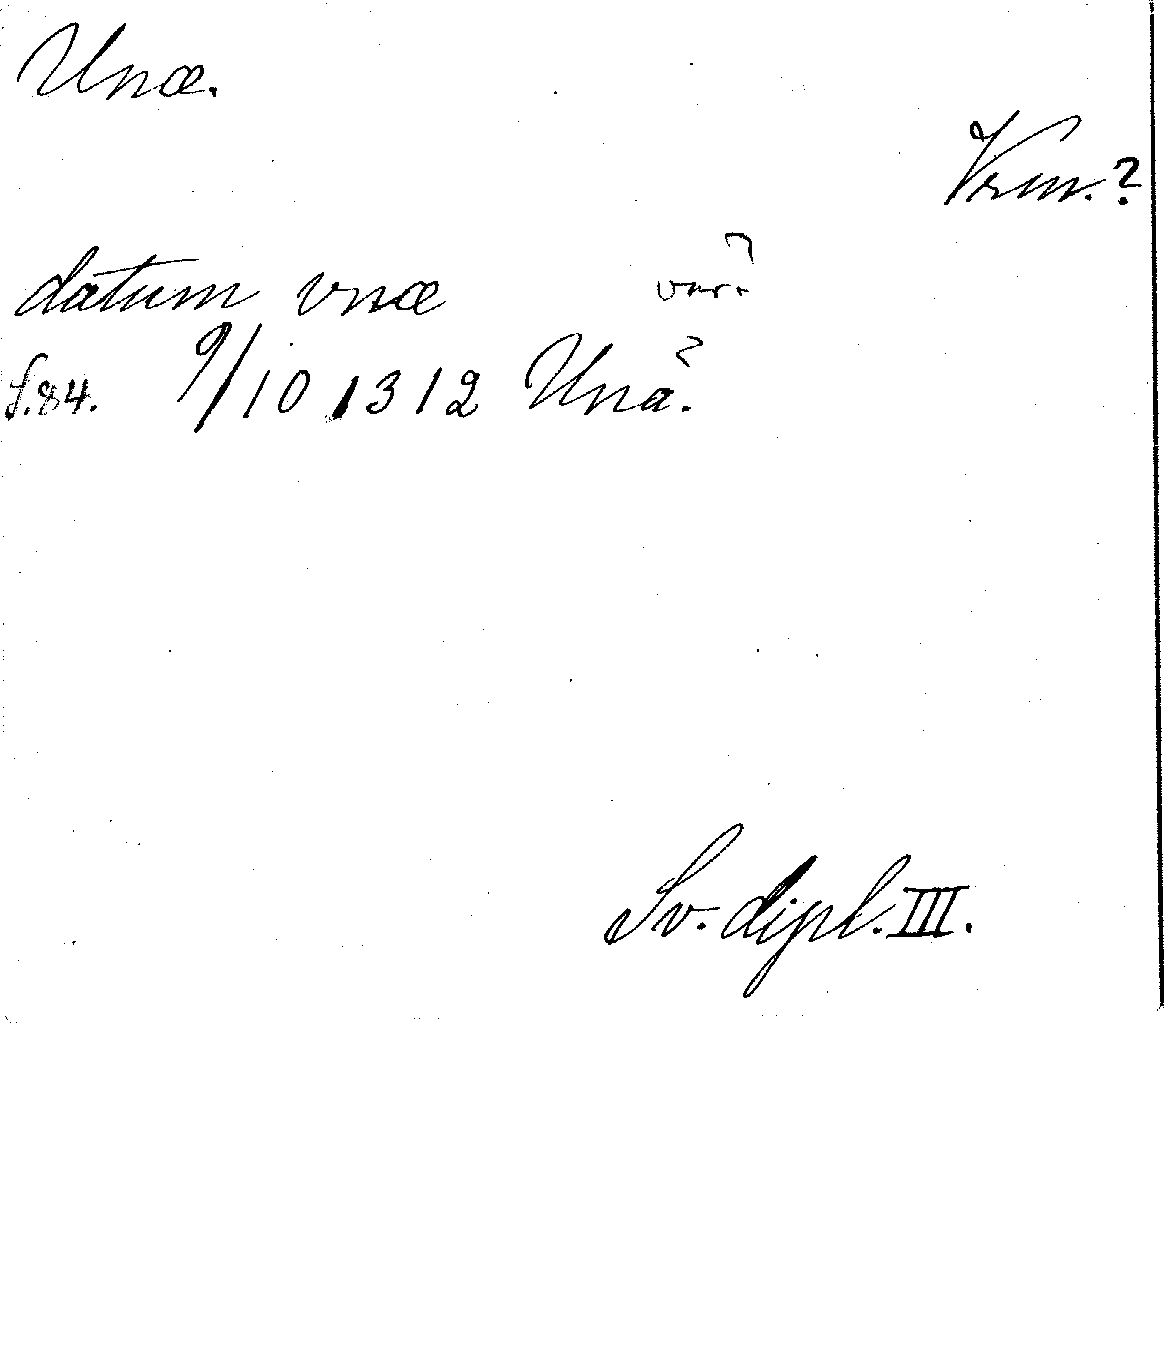 Unæ.
Vrm.?
datum vnæ
s. 84. 9/10 1312 Unå?
Sv. dipl. III.